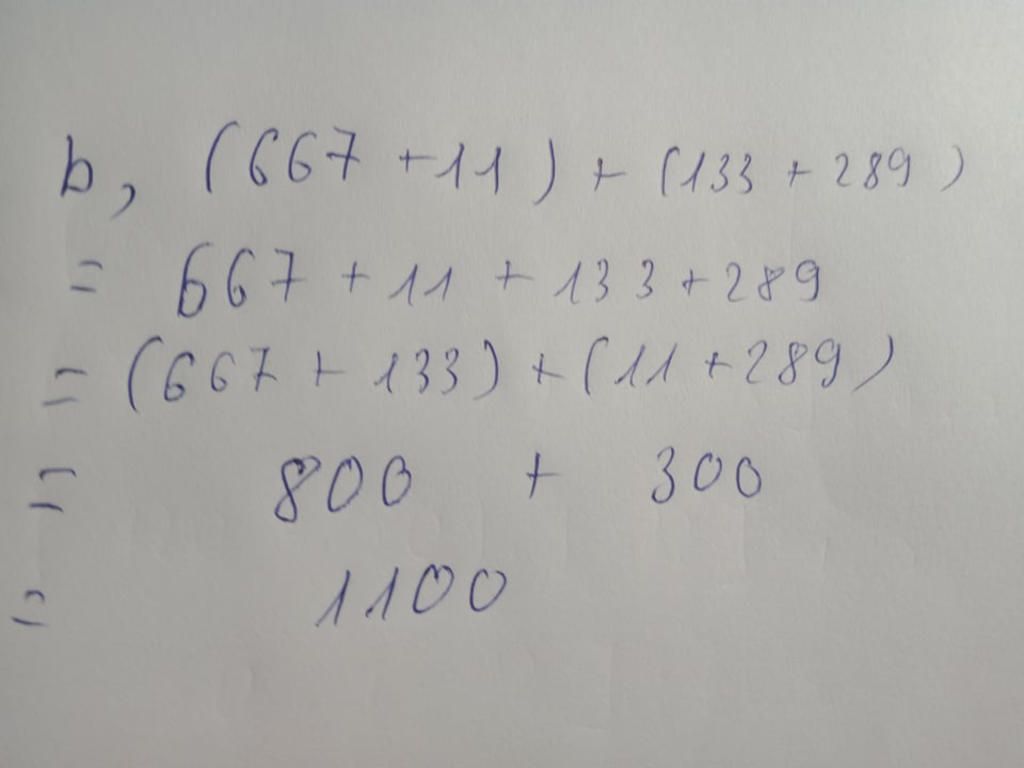 b, (667 + 11) + (133 + 289)
= 667 + 11 + 133 + 289
= (667 + 133) + (11 + 289)
= 800 + 300
= 1100